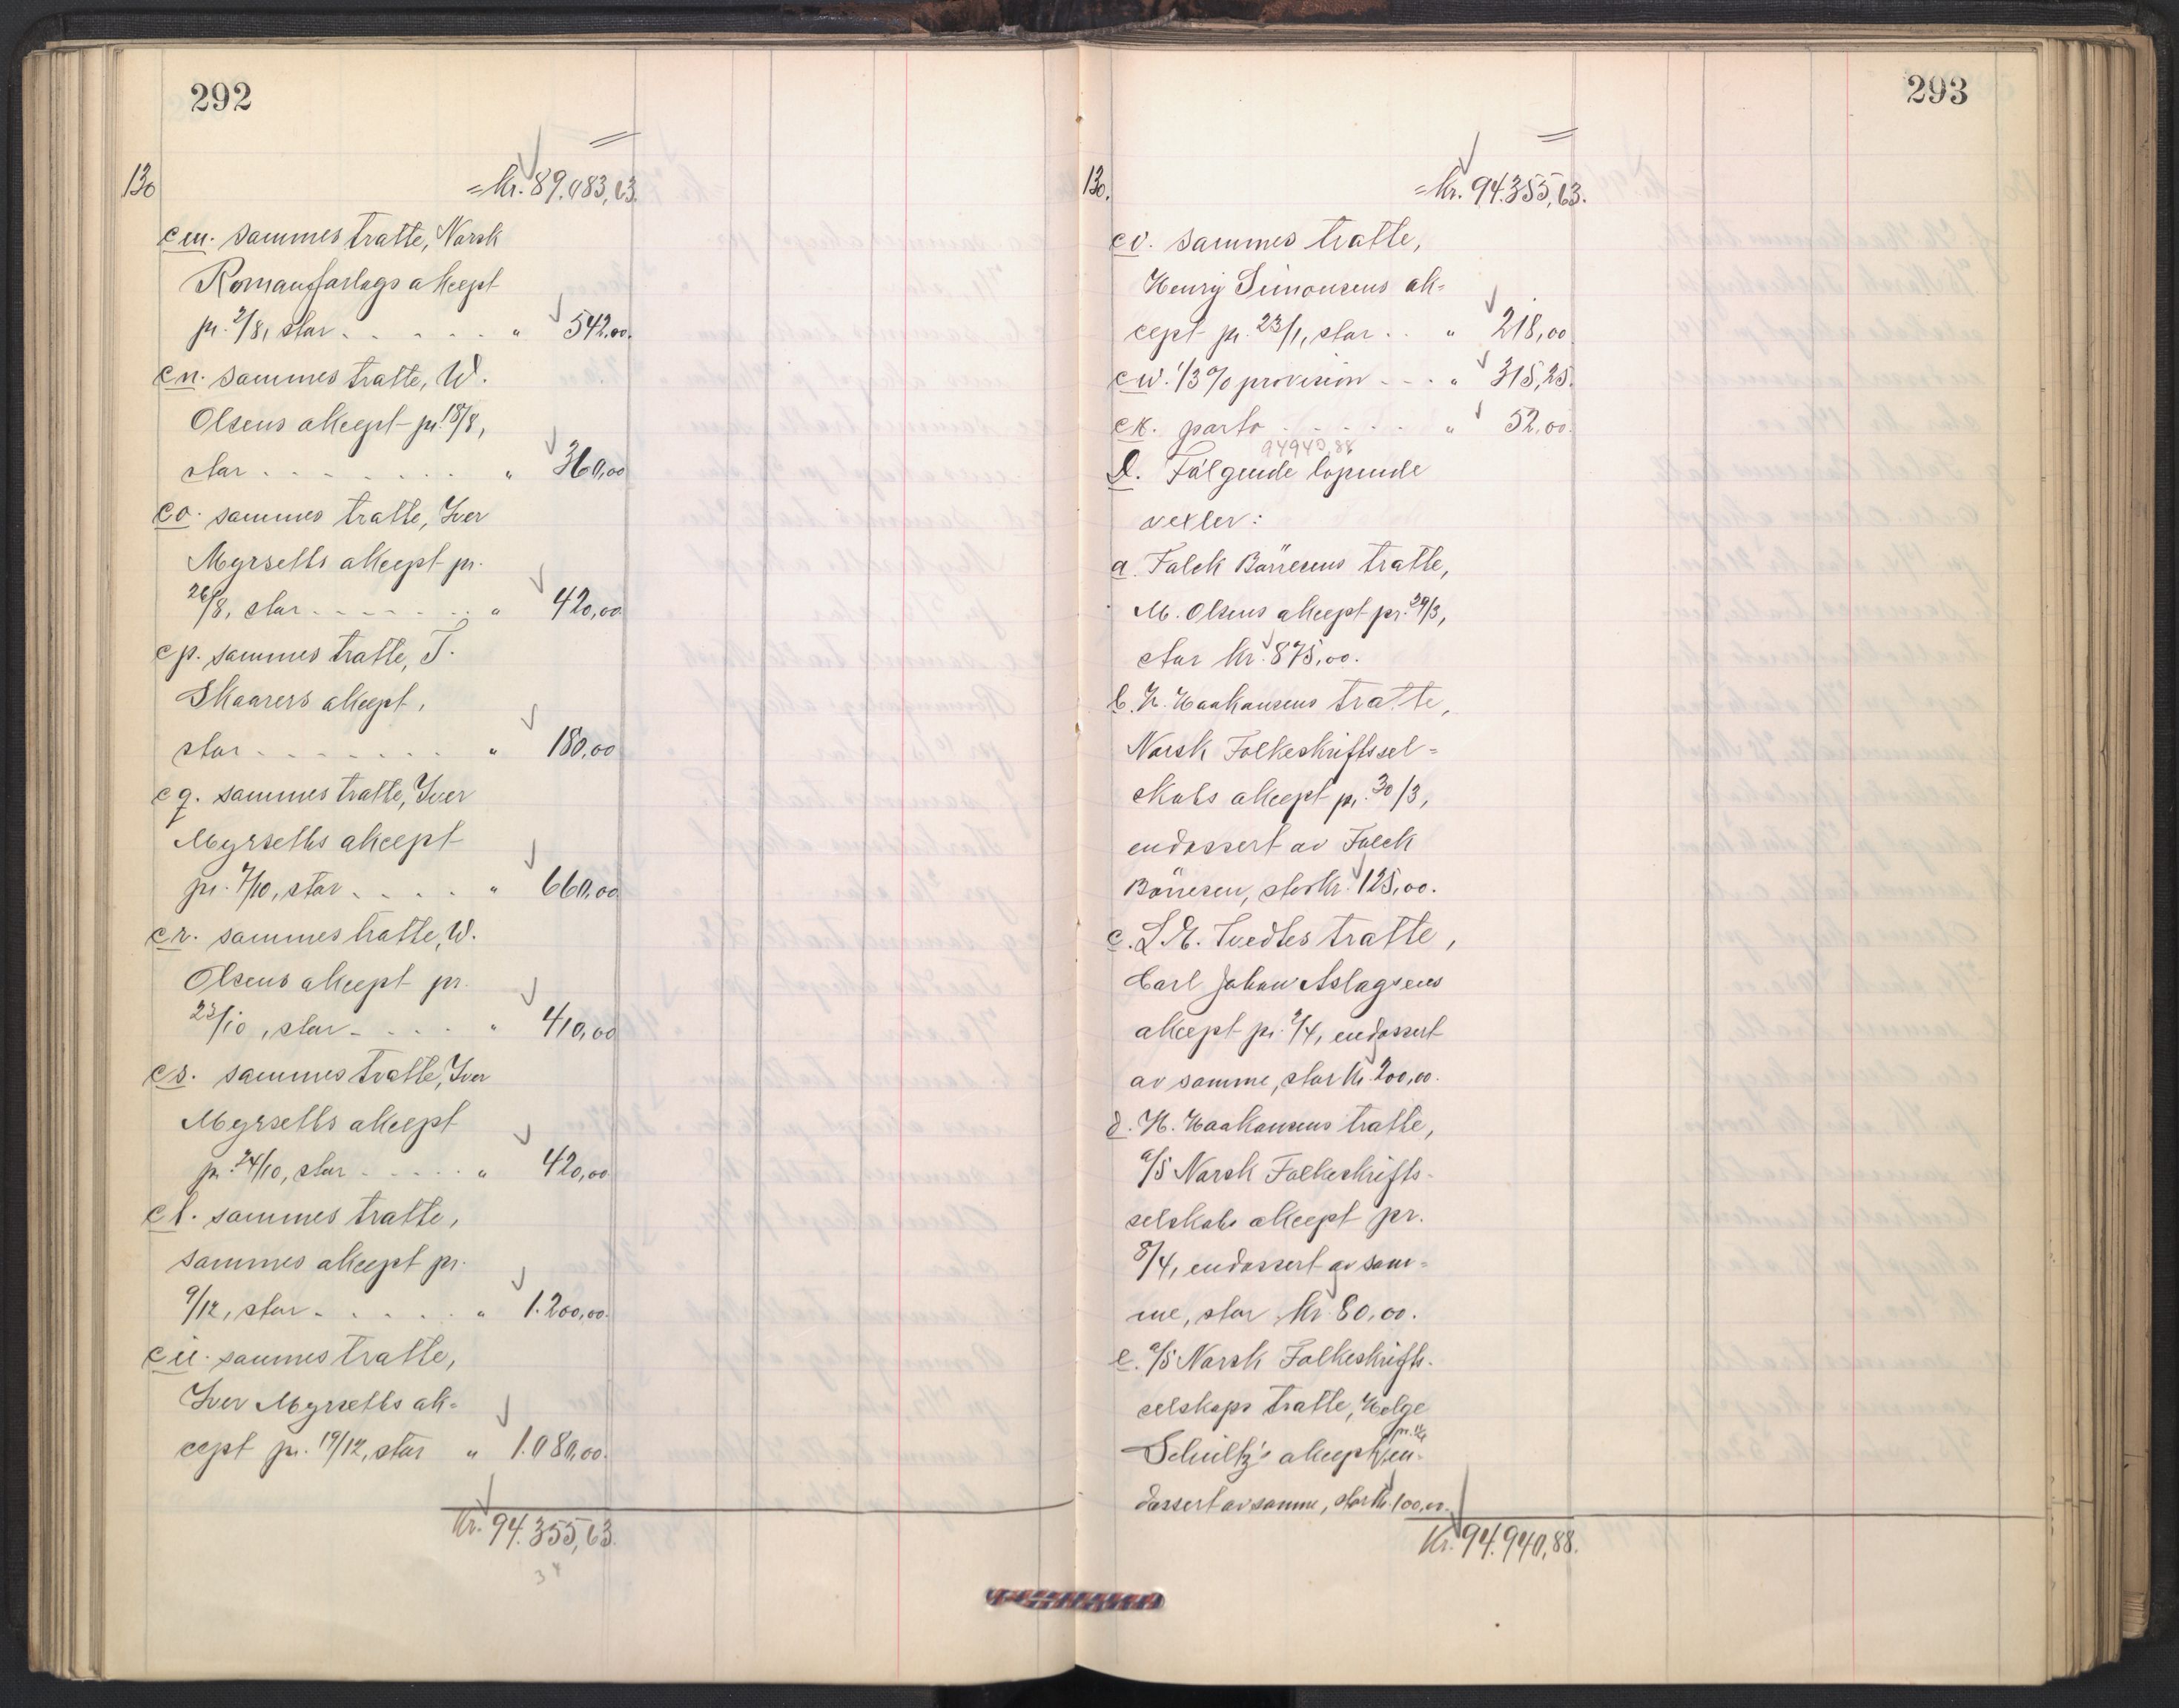 292
130
= kr. 89.083,63.
cm. sammes tratte, Norsk
Romanforlags akcept
pr. 2/8, stor . . . . . " 542,00.
cn. sammes tratte, W.
Olsens akcept pr. 18/8,
stor . . . . . . . " 360,00
co. sammes tratte, Iver
Myrseths akcept pr.
26/8, stor . . . . . . . " 420,00
cp. sammes tratte, T.
Skaarers akcept,
stor . . . . . . . " 180,00
cq. sammes tratte, Iver
Myrseths akcept
pr. 7/10, stor . . . . " 660,00
cr. sammes tratte, W.
Olsens akcept pr.
23/10, stor . . . . " 410,00
cs. sammes tratte, Iver
Myrseths akcept
pr. 24/10, stor . . . . . " 420,00
ct. sammes tratte,
sammes akcept pr.
9/12, stor . . . . . " 1.200,00.
cu. sammes tratte,
Iver Myrseths ak-
cept pr. 19/12, stor " 1.080,00.
Kr. 94.355,63.
34
293
130.
= kr. 94.355,63.
cv. sammes tratte,
Henry Simonsens ak-
cept pr. 23/1, stor . . " 218,00
cw. 1/3 % provision . . . " 315,25.
cx. porto . . . . . " 52,00.
94940,88
D. Følgende løpende
vexler:
a. Falck Börresens tratte,
M. Olsens akcept pr. 29/3,
stor kr. 875,00.
b. H. Haakonsens tratte,
Norsk Folkeskriftssel-
skabs akcept pr. 30/3,
endossert av Falck
Börresen, stor kr. 125,00.
c. L. E. Tvedtes tratte,
Carl Johan Aslagsens
akcept pr. 2/4, endossert
av samme, stor kr. 200,00.
d. H. Haakonsens tratte,
a/s Norsk Folkeskrifts-
selskabs akcept pr.
8/4, endossert av sam-
me, stor kr. 80,00.
e. a/s Norsk Folkeskrifts-
selskaps tratte, Helge
Schultz's akcept, en-
dossert av samme, stor kr. 100,00.
Kr. 94.940,88.